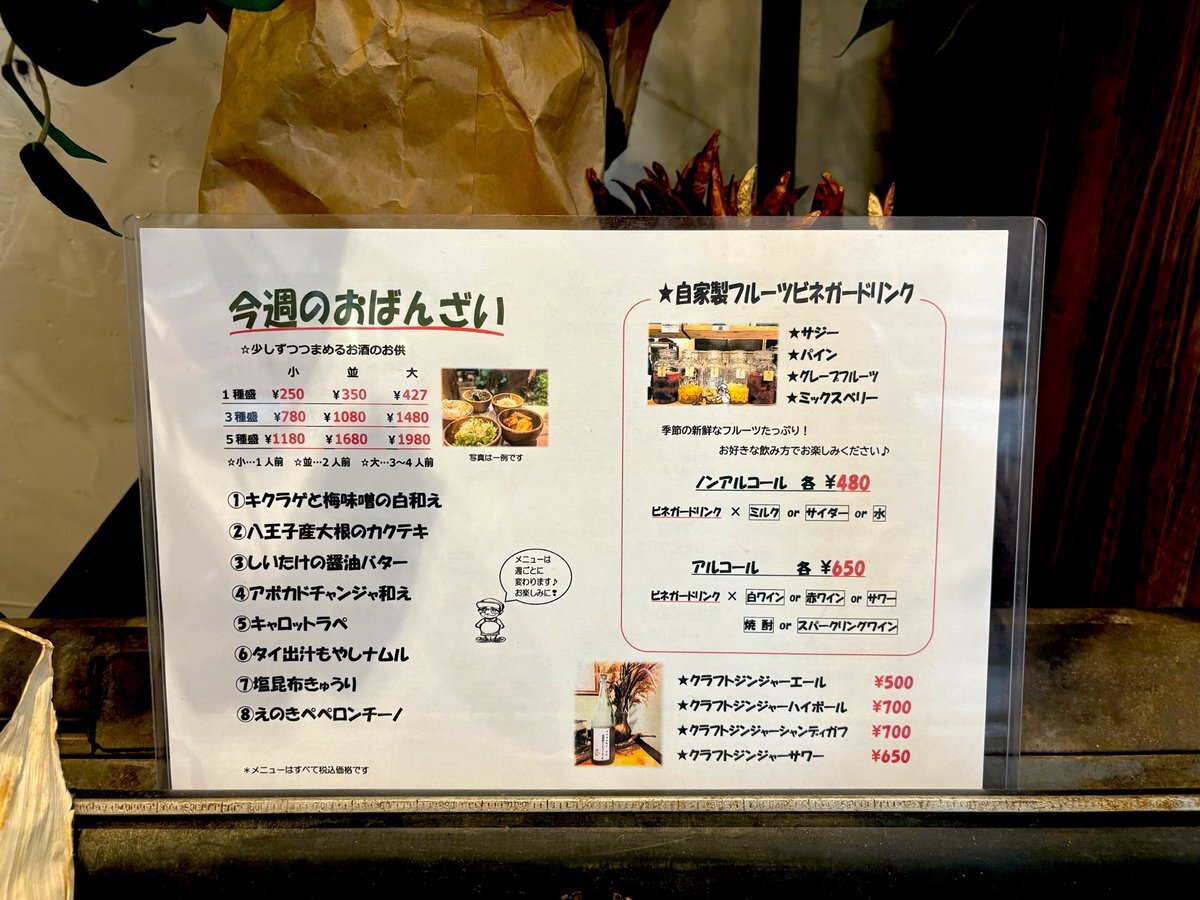 今週のおばんざい
☆少しずつつまめるお酒のお供
小 並 大
1種盛 ¥250 ¥350 ¥427
3種盛 ¥780 ¥1080 ¥1480
5種盛 ¥1180 ¥1680 ¥1980
☆小…1人前 ☆並…2人前 ☆大…3〜4人前
写真は一例です
①キクラゲと梅味噌の白和え
②八王子産大根のカクテキ
③しいたけの醤油バター
④アボカドチャンジャ和え
⑤キャロットラペ
⑥タイ出汁もやしナムル
⑦塩昆布きゅうり
⑧えのきペペロンチーノ
メニューは
週ごとに
変わります♪
お楽しみに!
*メニューはすべて税込価格です
★自家製フルーツビネガードリンク
★サジー
★パイン
★グレープフルーツ
★ミックスベリー
季節の新鮮なフルーツたっぷり!
お好きな飲み方でお楽しみください♪
ノンアルコール 各 ¥480
ビネガードリンク × ミルク or サイダー or 水
アルコール 各 ¥650
ビネガードリンク × 白ワイン or 赤ワイン or サワー
焼酎 or スパークリングワイン
★クラフトジンジャーエール ¥500
★クラフトジンジャーハイボール ¥700
★クラフトジンジャーシャンディガフ ¥700
★クラフトジンジャーサワー ¥650